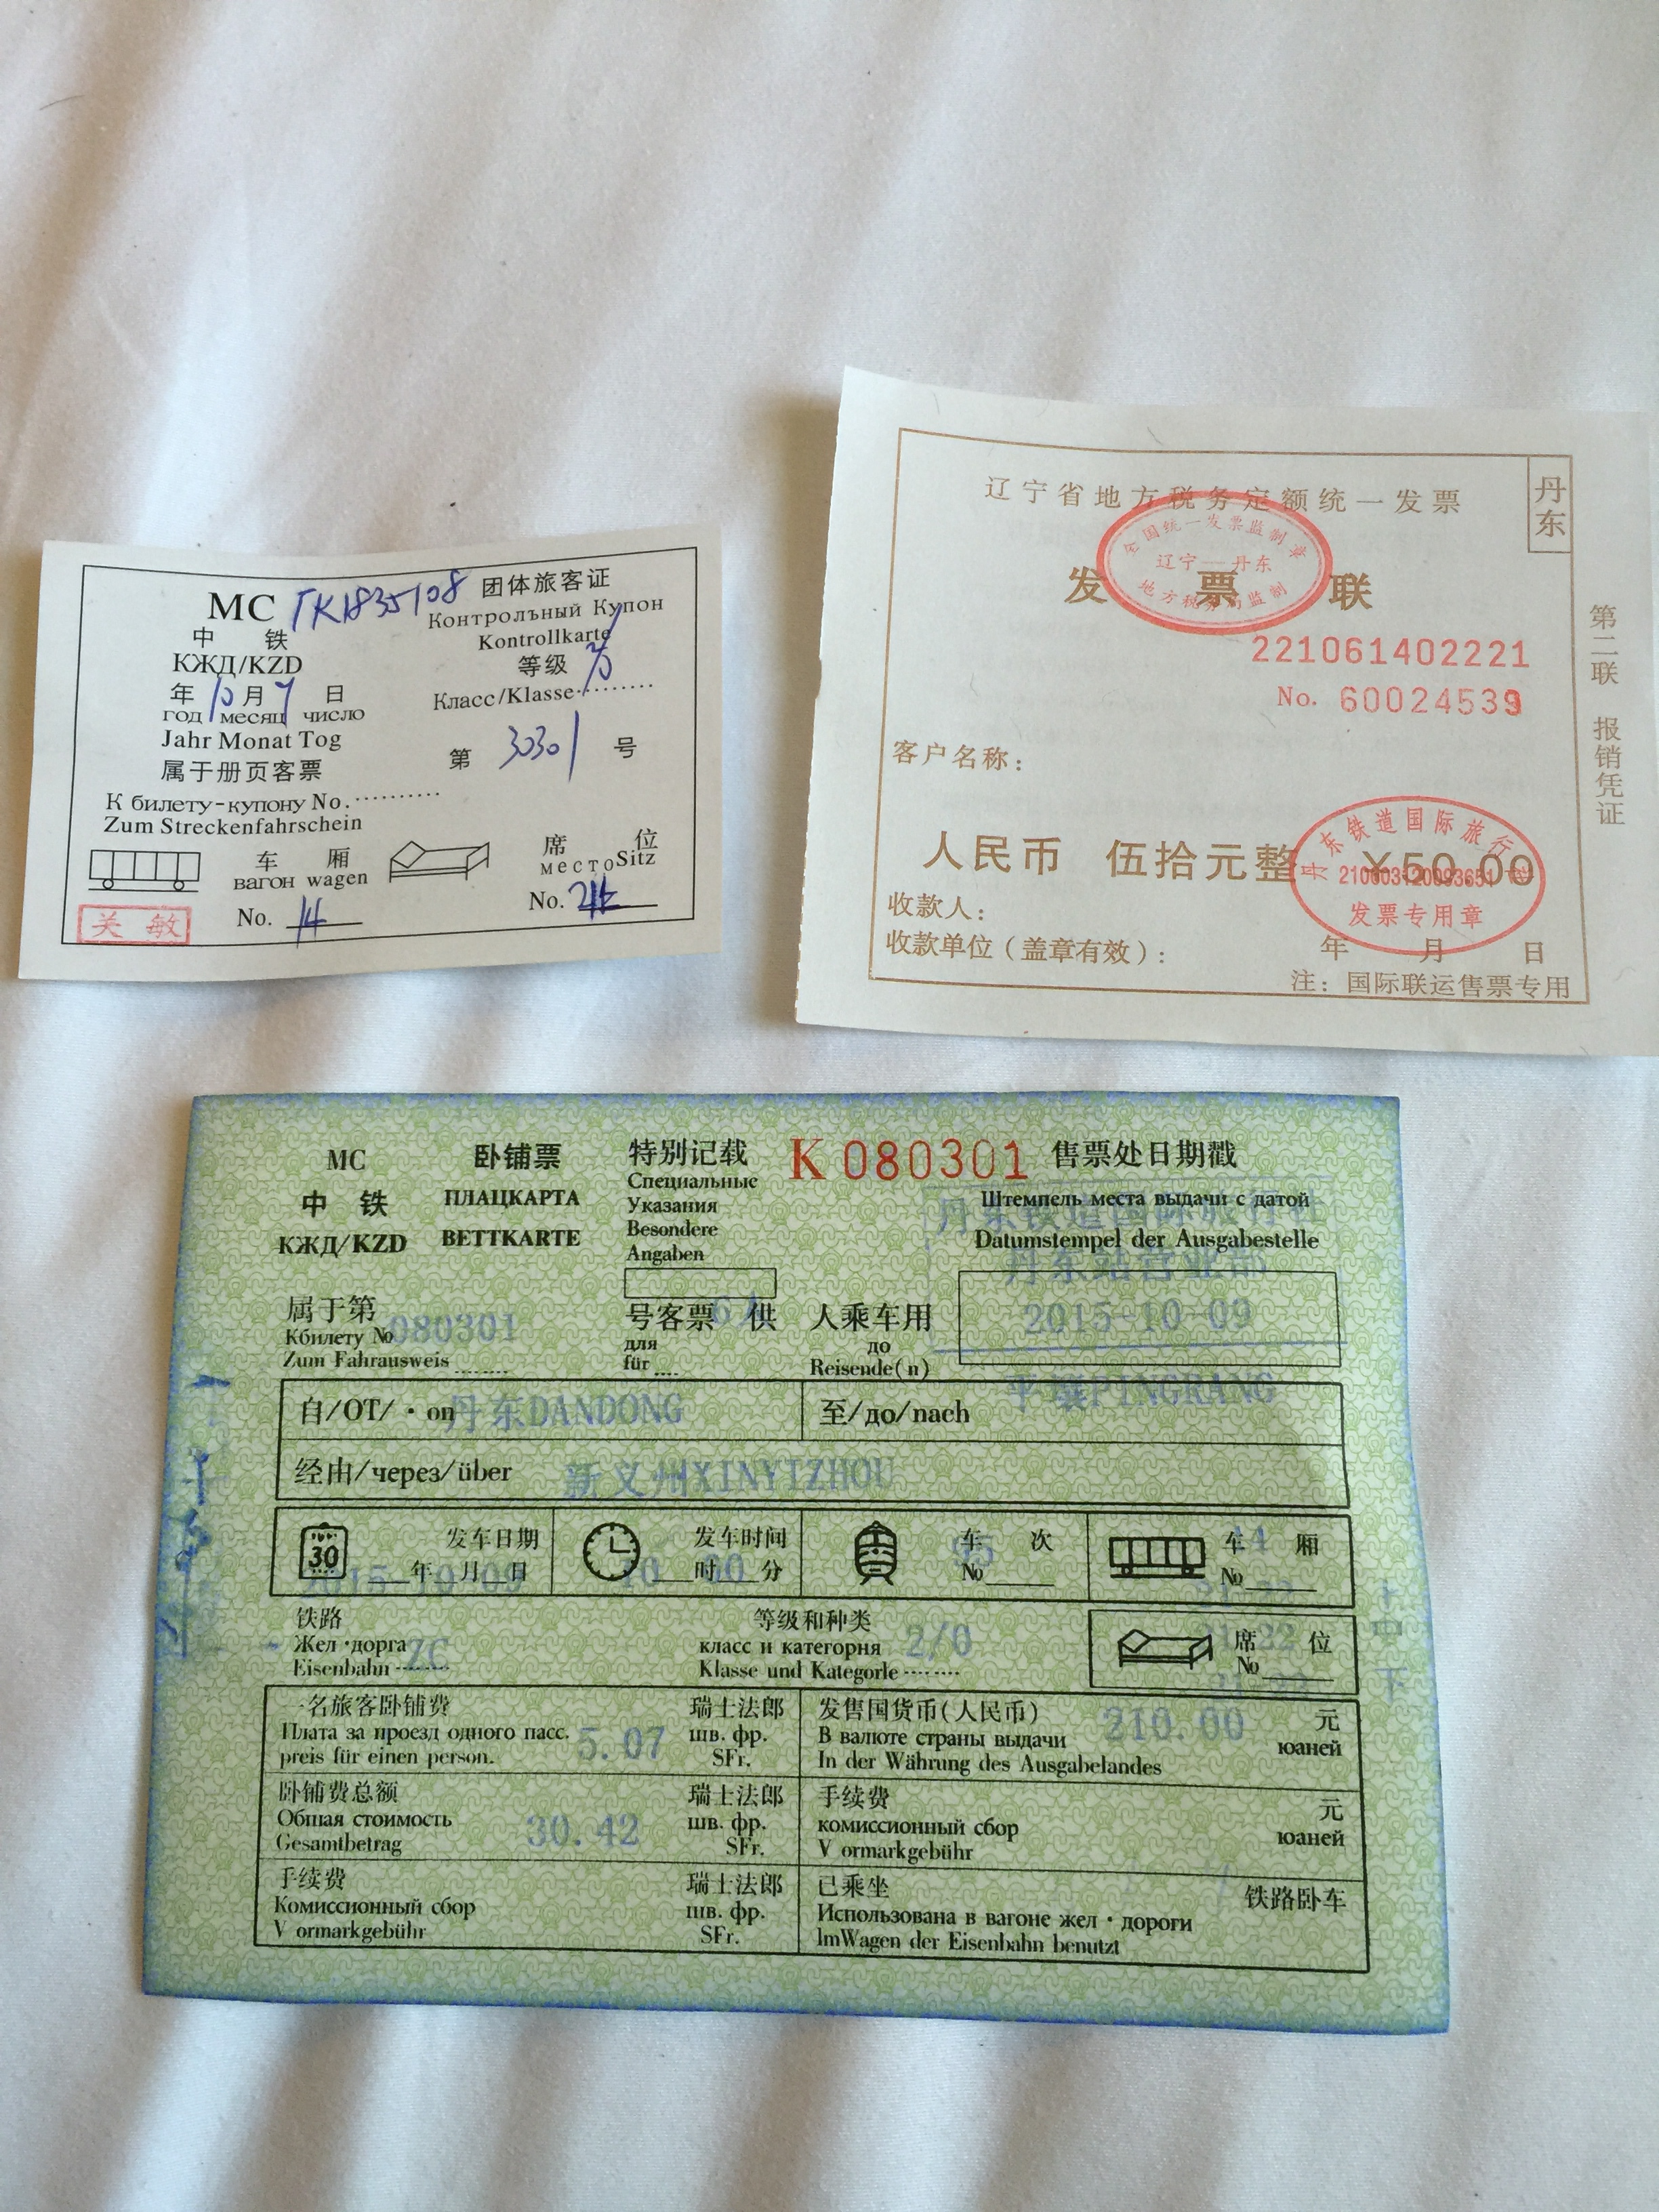 MC
团体旅客证
中 铁
Контролъный Купон
КЖД/KZD
Kontrollkarte
等级
年 10 月 日
год месяц число
Класс/Klasse
Jahr Monat Tog
第 30301 号
属于册页客票
К билету-купону No.
Zum Streckenfahrschein
车 厢
席 位
вагон wagen
место Sitz
No. 14
No.
关 敏
丹东
辽宁省地方税务定额统一发票
全国统一发票监制章
辽宁—丹东
地方税务局监制
发 票 联
221061402221
No. 60024539
客户名称：
人民币 伍拾元整 ¥50.00
丹东铁道国际旅行社
发票专用章
收款人：
收款单位（盖章有效）：
年 月 日
注：国际联运售票专用
第二联 报销凭证
MC
卧铺票
特别记载
K 080301
售票处日期戳
中 铁
ПЛАЦКАРТА
Специальные
Указания
Штемпель места выдачи с датой
丹东铁道国际旅行社
КЖД/KZD
BETTKARTE
Besondere
Angaben
Datumstempel der Ausgabestelle
丹东站营业部
2015-10-09
属于第
号客票 供
人乘车用
Кбилету №
080301
для
до
Zum Fahrausweis
für
Reisende(n)
自/ОТ/·on
丹东DANDONG
至/до/nach
平壤PINGRANG
经由/через/über
新义州XINYIZHOU
30
发车日期
年 月 日
2015-10-09
发车时间
时 分
10 00
车 次
№
95
车 厢
№
14
铁路
Жел·дорга
Eisenbahn
ZC
等级和种类
класс и категорня
Klasse und Kategorle
2/0
席 位
№
上
中
下
一名旅客卧铺费
Плата за проезд одного пасс.
preis für einen person.
5.07
瑞士法郎
шв. фр.
SFr.
发售国货币(人民币)
В валюте страны выдачи
In der Währung des Ausgabelandes
210.00
元
юаней
卧铺费总额
Общая стоимость
Gesamtbetrag
30.42
瑞士法郎
шв. фр.
SFr.
手续费
комиссионный сбор
V ormarkgebühr
元
юаней
手续费
Комиссионный сбор
V ormarkgebühr
瑞士法郎
шв. фр.
SFr.
已乘坐
Использована в вагоне жел·дороги
lmWagen der Eisenbahn benutzt
铁路卧车